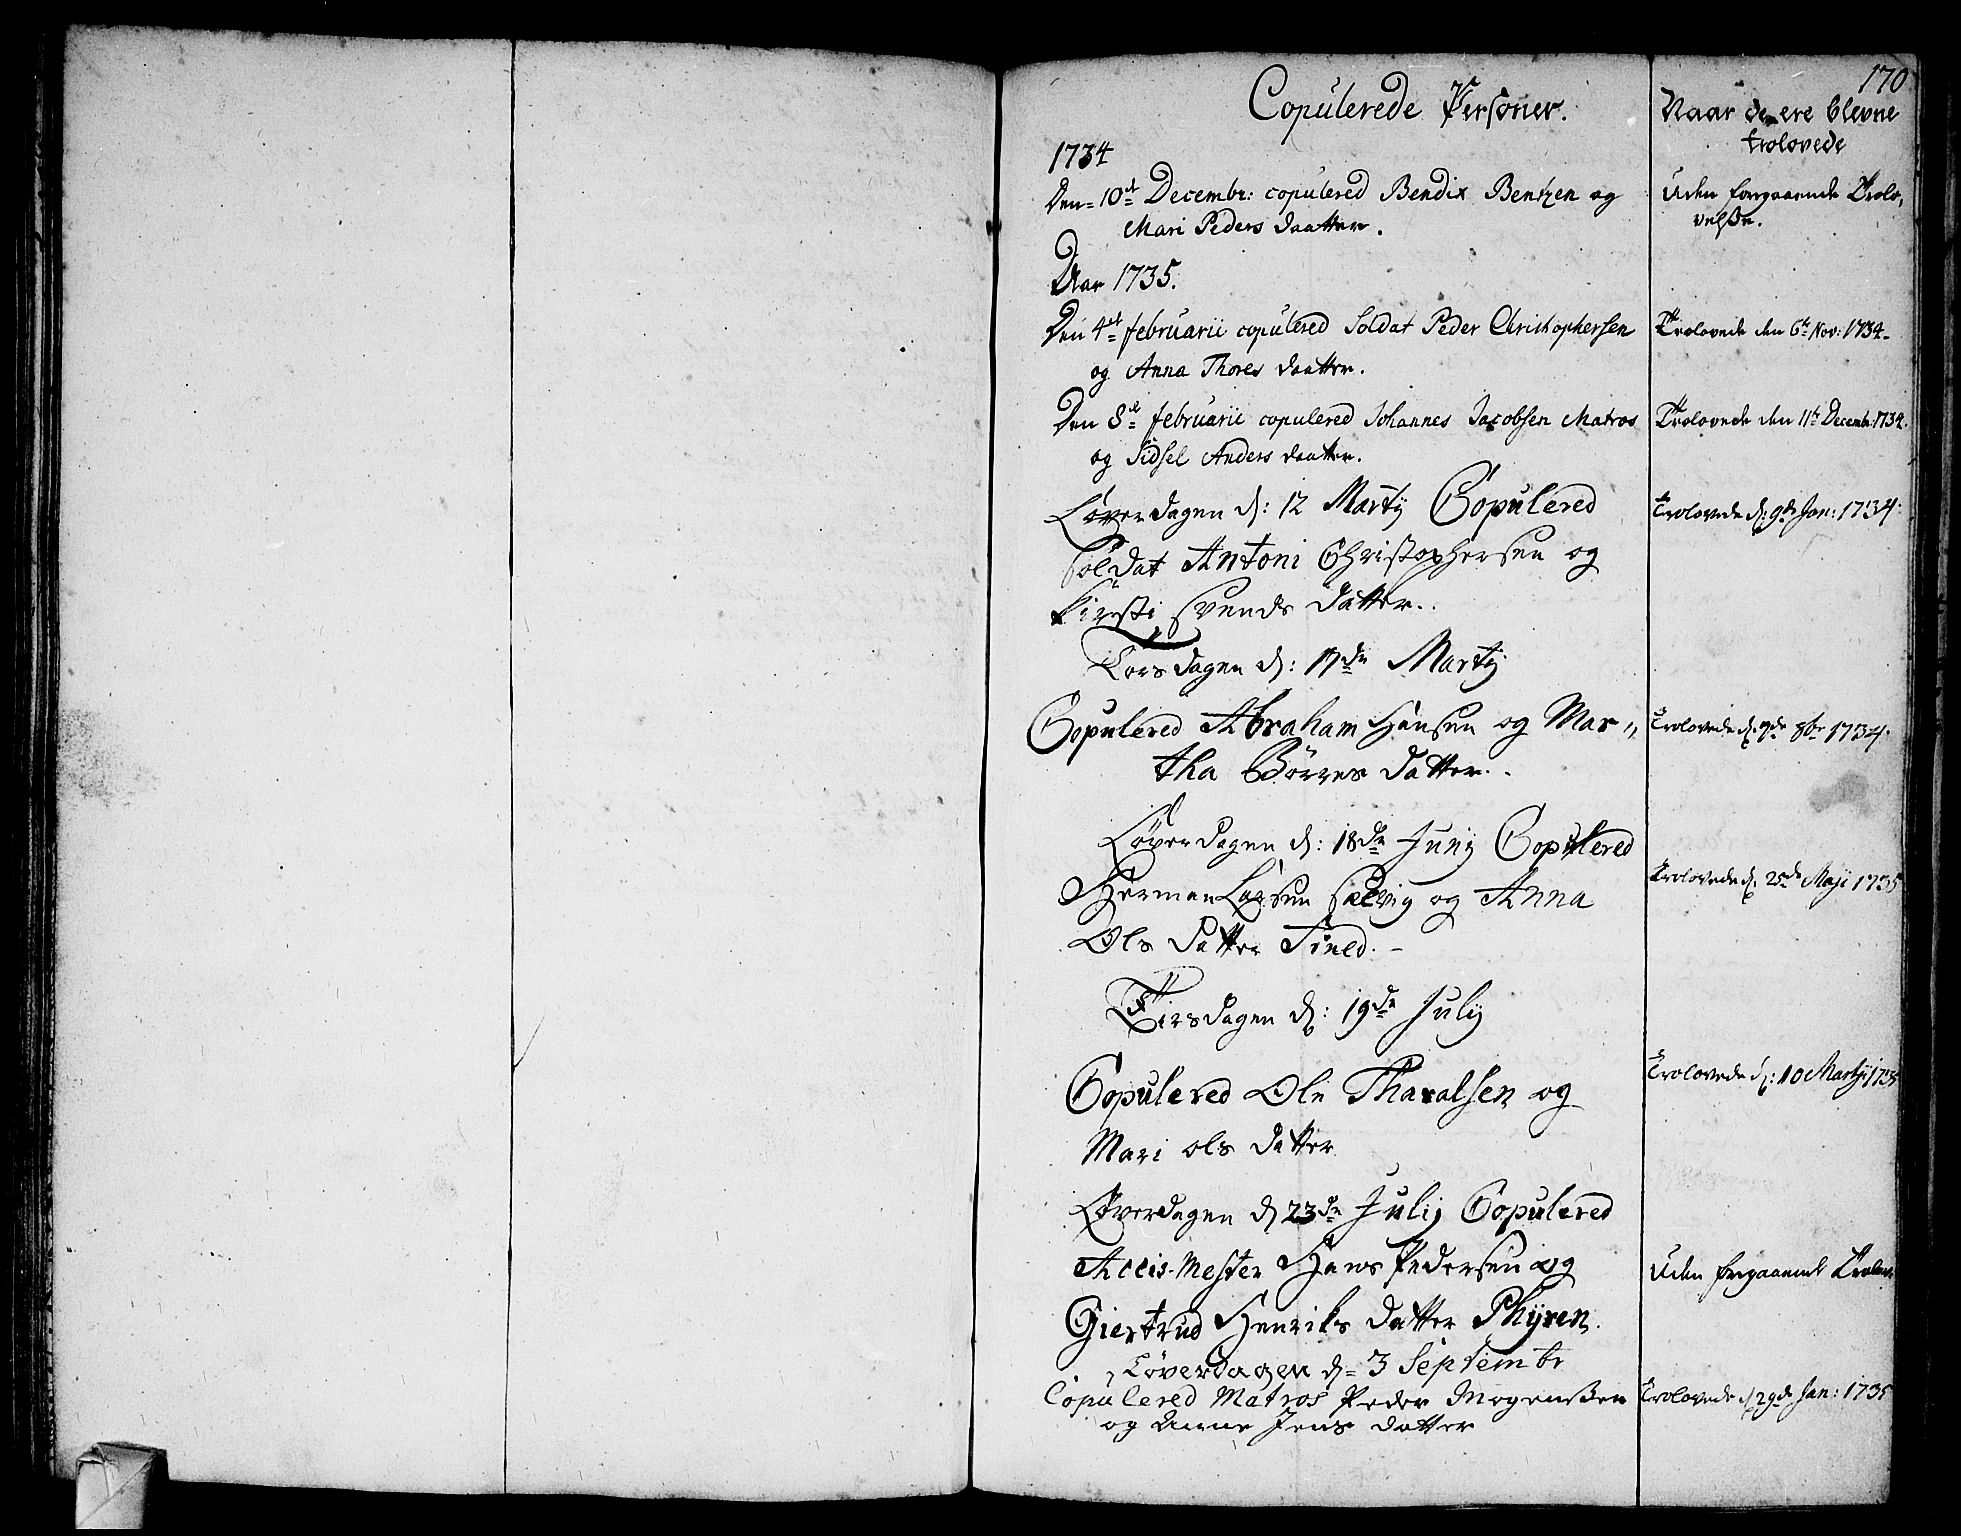 170
Copulerede Personer.
Naar de ere blevne
trolovede
1734
Den 10de Decembr: copulered Bendix Bentzen og
Mari Peders daatter.
Uden forgaaende Trolo,
velsße.
Aar 1735.
Den 4de februarii copulered Soldat Peder Christophersen
og Anna Thores daatter.
Trolovede den 6te Nov: 1734.
Den 8de februarii copulered Johannes Jacobsen Matros
og Sidsel Anders daatter.
Trolovede den 11te Decembr: 1734.
Løverdagen d: 12 Martij Copulered
Soldat Antoni Christophersen og
Kirsti Svends datter.
Trolovede d: 9de Jan: 1734.
Torsdagen d: 17de Martij
Copulered Abraham Hansen og Mar,,
tha Börres datter.
Trolovede d: 9de 8br 1734.
Løverdagen d: 18de Junij Copulered
Herman Larsen og Anna
Ols datter
Trolovede d: 25de Maji 1735
Tirsdagen d: 19de Julij
Copulered Ole Tharalsen og
Mari ols datter
Trolovede d: 10 Martij 1735
Løverdagen d 23de Julij Copulered
Accis-Mester Hans Pedersen og
Giertrud Henriks datter Phÿren.
Uden forgaaende
Løverdagen d= 3 Septembr
Copulered Matros Peder Mogenßen
og Anne Jens datter
Trolovede d 29de Jan: 1735